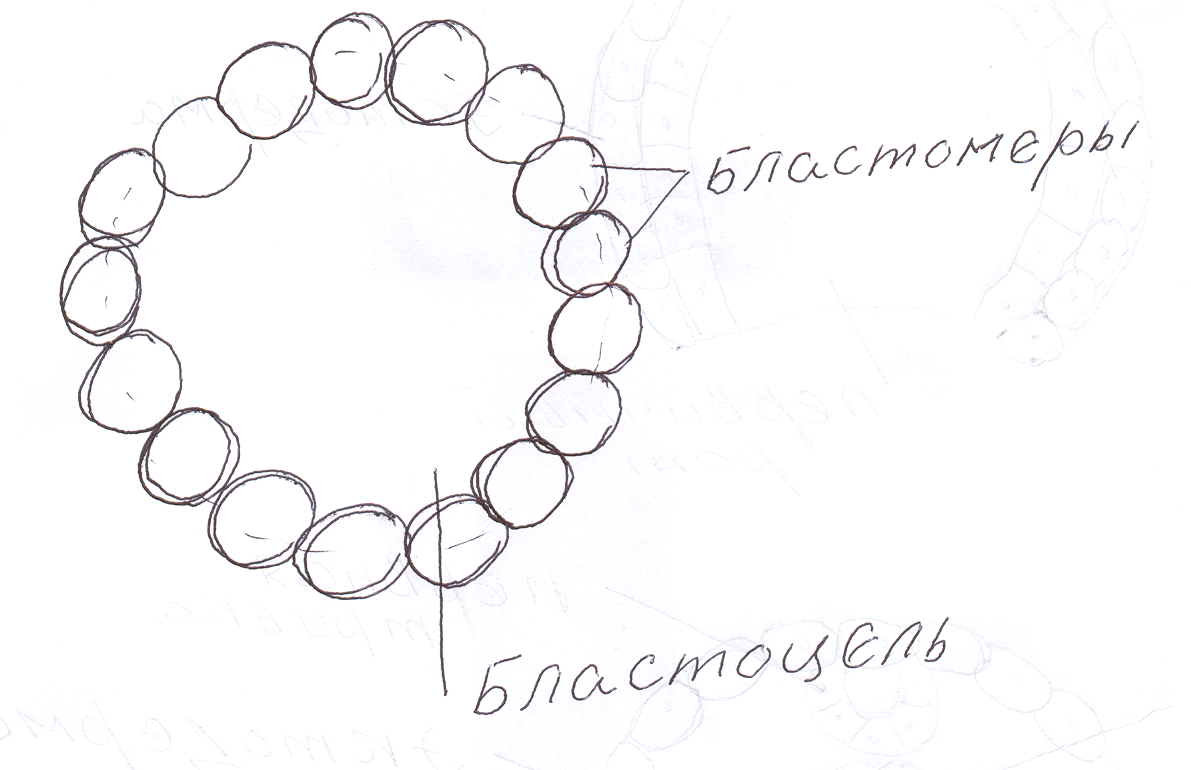 Бластомеры
Бластоцель